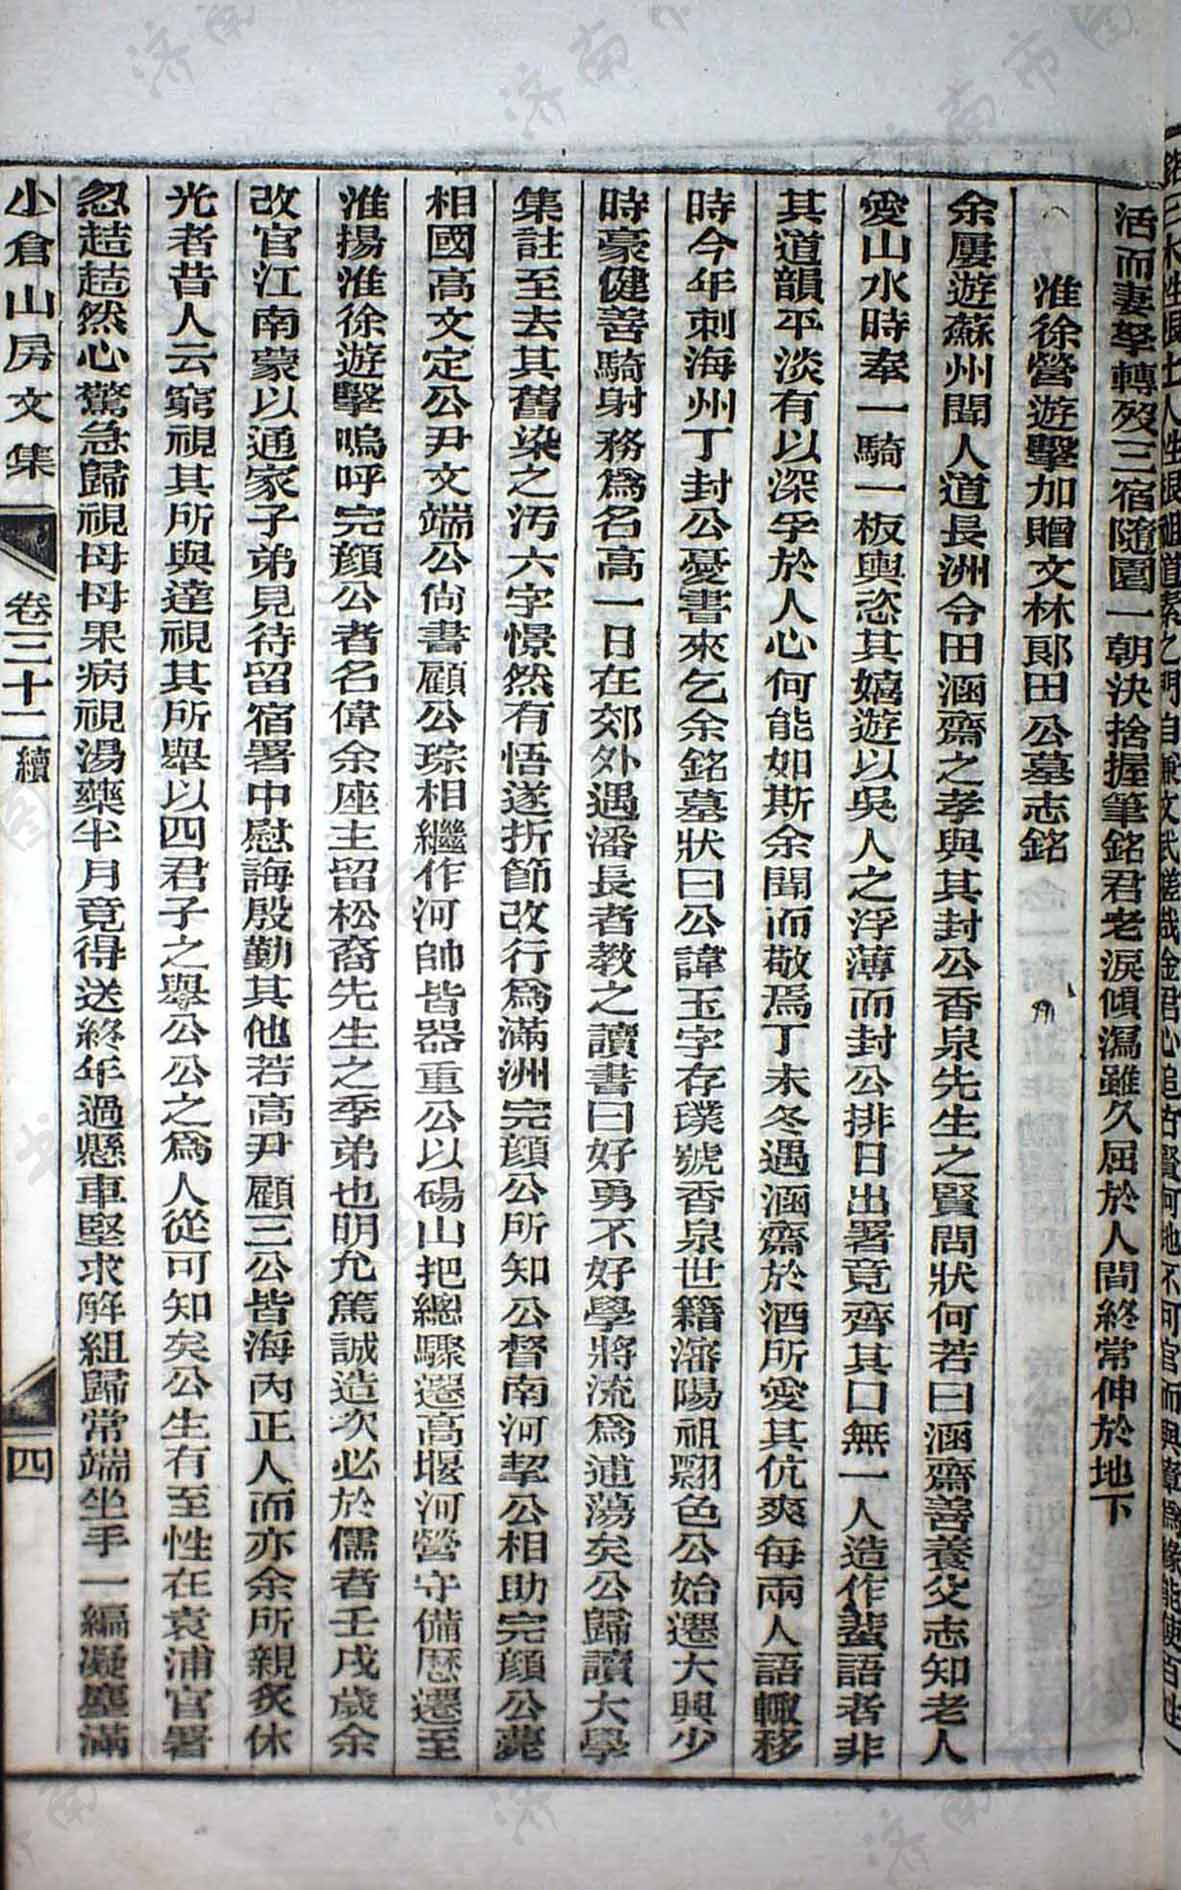 活而妻孥轉歿三宿隨園一朝決捨握筆銘君老淚傾瀉雖久屈於人間終常伸於地下
淮徐營遊擊加贈文林郎田公墓志銘
余屢遊蘇州聞人道長洲令田涵齋之孝與其封公香泉先生之賢問狀何若曰涵齋善養父志知老人
愛山水時奉一騎一板輿恣其嬉遊以吳人之浮薄而封公排日出署竟齊其口無一人造作蜚語者非
其道韻平淡有以深孚於人心何能如斯余聞而敬焉丁未冬遇涵齋於酒所愛其伉爽每兩人語輒移
時今年刺海州丁封公憂書來乞余銘墓狀曰公諱玉字存璞號香泉世籍瀋陽祖翾色公始遷大興少
時豪健善騎射務為名高一日在郊外遇潘長者教之讀書曰好勇不好學將流為逋蕩矣公歸讀大學
集註至去其舊染之汚六字憬然有悟遂折節改行為滿洲完顏公所知公督南河挈公相助完顏公薨
相國高文定公尹文端公尙書顧公琮相繼作河帥皆器重公以碭山把總驟遷高堰河營守備歷遷至
淮揚淮徐遊擊嗚呼完顏公者名偉余座主留松裔先生之季弟也明允篤誠造次必於儒者壬戌歲余
改官江南蒙以通家子弟見待留宿署中慰誨殷勤其他若高尹顧三公皆海內正人而亦余所親炙休
光者昔人云窮視其所與達視其所舉以四君子之舉公公之為人從可知矣公生有至性在袁浦官署
忽趌趌然心驚急歸視母母果病視湯藥半月竟得送終年過懸車堅求解組歸常端坐手一編凝塵滿
小倉山房文集 卷三十二 續 四